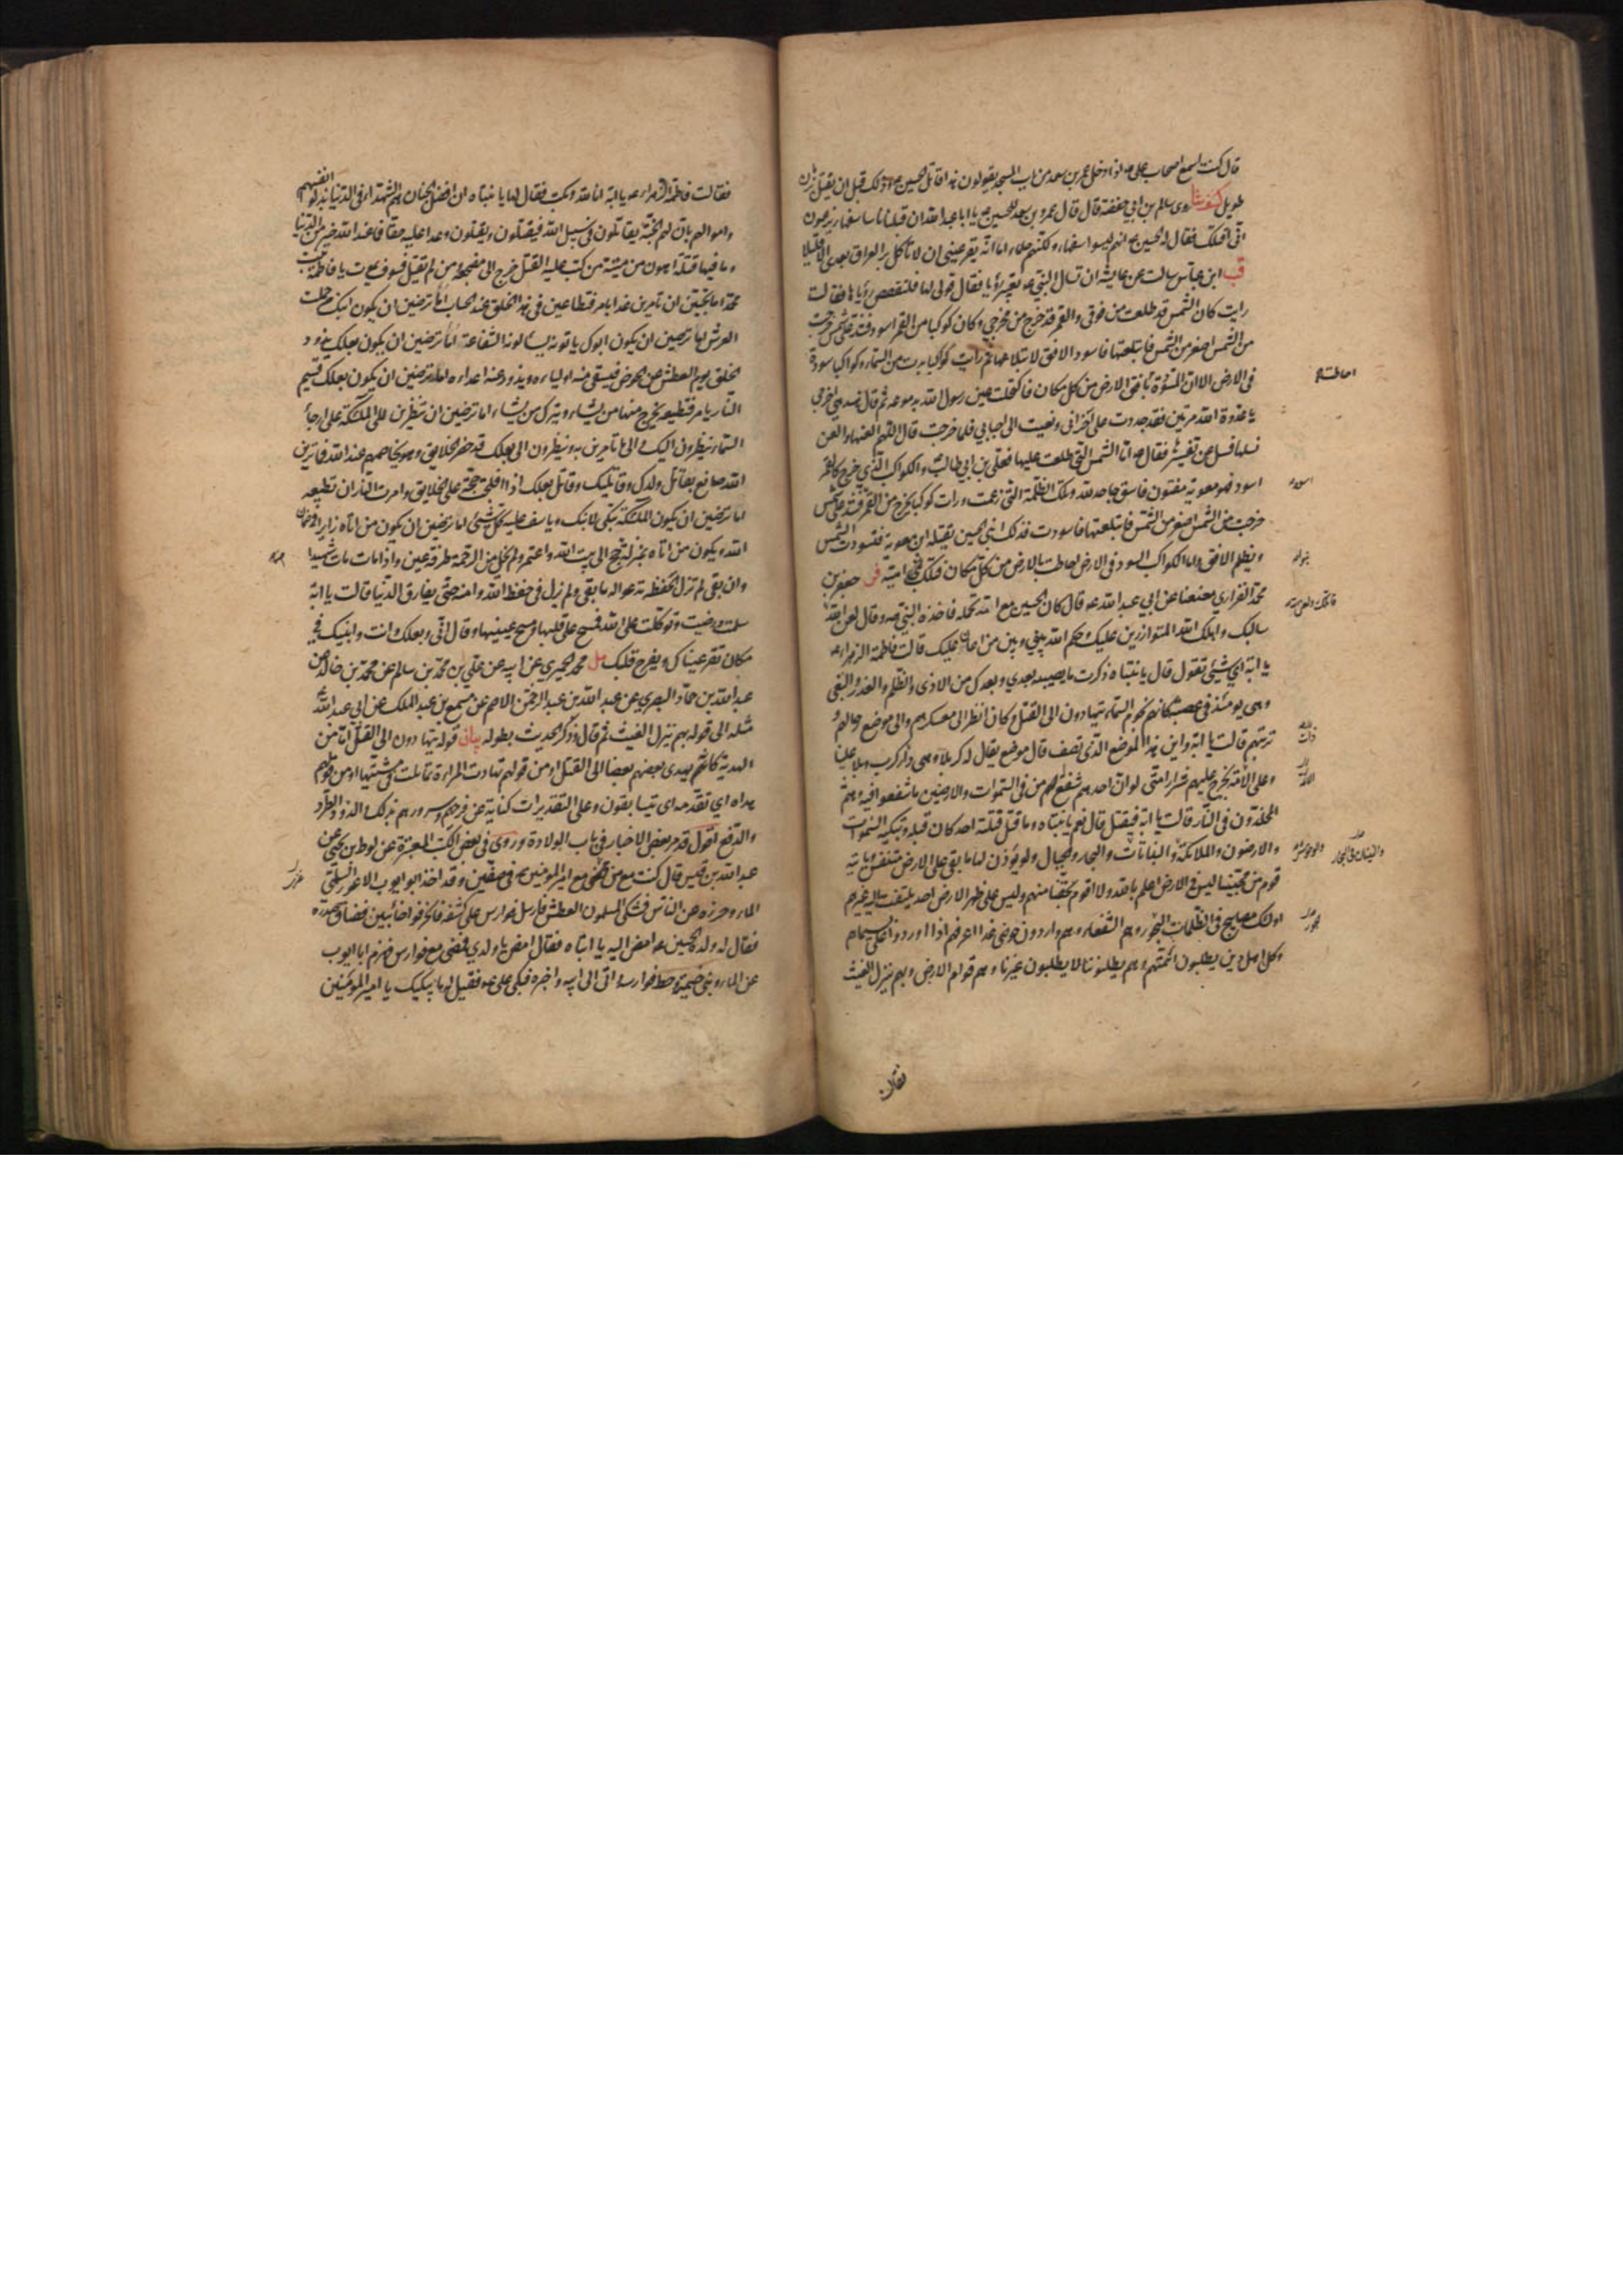 قال كنت اسمع اصحاب علي ع اذا دخل عمر بن سعد من باب المسجد يقولون هذا قاتل الحسين ع وذلك قبل ان يقتل بزمن
طويل كشف شا روى سالم بن ابي حفصة قال قال عمر بن سعد للحسين ع يا ابا عبد الله ان قبلنا ناسا سفهاء يزعمون
انّي اقتلك فقال له الحسين ع انهم ليسوا سفهاء ولكنهم حلماء اما انّه يقر عيني ان لا تأكل بر العراق بعدي الا قليلا
قب ابن عباس سالت هند عايشة ان تسال النبي ص تعبير رؤيا فقال قولي لها فلتقصص رؤياها فقالت
رايت كان الشمس قد طلعت من فوقي والقمر قد خرج من مخرجي وكان كوكبا خرج من القمر اسود فشد على شمس خرجت
من الشمس اصغر من الشمس فابتلعتها فاسود الافق لابتلاعها ثم رايت كواكب بدت من السماء وكواكبا مسودة
في الارض الا ان المسودة بافق الارض من كل مكان فاكتحلت عين رسول الله ص بدموعه ثم قال هي هند اخرجي
يا عدوة الله مرتين فقد جددت علي احزاني ونعيت الي احبابي فلما خرجت قال اللهم العنها والعن
نسلها فسئل عن تفسيرها فقال ص اما الشمس التي طلعت عليها فعلي بن ابي طالب ع والكوكب الذي خرج كالقمر
اسود فهو معوية مفتون فاسق جاحد لله وتلك الظلمة التي زعمت ورات كوكبا يخرج من القمر فشد على شمس
خرجت من الشمس اصغر من الشمس فابتلعتها فاسودت فذلك ابني الحسين يقتله ابن معوية فتسود الشمس
ويظلم الافق واما الكواكب السود في الارض احاطت بالارض من كل مكان فتلك بني امية فر جعفر بن
محمد الفزاري معنعنا عن ابي عبد الله ع قال كان الحسين مع امه تحمله فاخذه النبي ص وقال لعن الله
سالبك واهلك الله المتوازرين عليك وحكم الله بيني وبين من اعان عليك قالت فاطمة الزهراء ع
يا ابة اي شيئ تقول قال يا بنتاه ذكرت ما يصيبه بعدي وبعدك من الاذى والظلم والغدر والبغي
وهو يومئذ في عصبة كانهم نجوم السماء يتهادون الى القتل وكان انظر الى معسكرهم والى موضع رحالهم و
تربتهم قالت يا ابة واين هذا الموضع الذي تصف قال موضع يقال له كربلا وهي دار كرب وبلا علينا
وعلى الامة يخرج عليهم شرار امتي لو ان احدهم شفع لهم من في السموات والارضين ما شفعوا فيه وهم
المخلدون في النار قالت يا ابة فيقتل قال نعم يا بنتاه وما قتل قتلته احد كان قبله وتبكيه السموات
والارضون والملائكة والنباتات والبحار والجبال ولو يؤذن لها ما بقي على الارض متنفس وياتيه
قوم من محبينا ليس في الارض اعلم بالله ولا اقوم بحقنا منهم وليس على ظهر الارض احد يلتفت اليه غيرهم
اولئك مصابيح في ظلمات الجور وهم الشفعاء وهم واردون حوضي غدا اعرفهم اذا اوردوا علي بسيماهم
وكل اهل دين يطلبون ائمتهم وهم يطلبوننا لا يطلبون غيرنا وهم قوام الارض وبهم ينزل الغيث
فقالت
فقالت فاطمة الزهراء ع يا ابة انا لله وبكت فقال لها يا بنتاه ان افضل اهل الجنان هم الشهداء في الدنيا بذلوا انفسهم
واموالهم بان لهم الجنة يقاتلون في سبيل الله فيقتلون ويقتلون وعدا عليه حقا فما عند الله خير من الدنيا
وما فيها قتلة اهون من ميتة من كتب عليه القتل خرج الى مضجعه ومن لم يقتل فسوف يموت يا فاطمة بنت
محمد اما تحبين ان تامرين غدا بامر فتطاعين في هذا الخلق عند الحساب اما ترضين ان يكون ابنك من حملت
العرش اما ترضين ان يكون ابوك ياتونه يسئلونه الشفاعة اما ترضين ان يكون بعلك يذود
الخلق يوم العطش عن الحوض فيسقي منه اولياءه ويذود عنه اعداءه اما ترضين ان يكون بعلك قسيم
النار يامر فتطيعه يخرج منها من يشاء ويترك من يشاء اما ترضين ان تنظرين الى الملئكة على ارجاء
السماء ينظرون اليك والى ما تامرين به وينظرون الى بعلك قد حضر الخلايق وهو يخاصمهم عند الله فما ترين
الله صانع بقاتل ولدك وقاتليك وقاتل بعلك اذا افلجت حجته على الخلايق وامرت النار ان تطيعه
اما ترضين ان يكون الملئكة تبكي لابنك وياسف عليه كل شيئ اما ترضين ان يكون من اتاه زايرا في ضمان
الله ويكون من اتاه بمنزلة من حج الى بيت الله واعتمر ولم يخل من الرحمة طرفة عين واذا مات مات شهيدا
وان بقي لم تزل الحفظة تدعو له ما بقي ولم يزل في حفظ الله وامنه حتى يفارق الدنيا قالت يا ابة
سلمت ورضيت وتوكلت على الله فمسح على قلبها ومسح عينيها وقال اني وبعلك وانت وابنيك في
مكان تقر عيناك ويفرح قلبك مل محمد الحميري عن ابيه عن علي بن محمد بن سالم عن محمد بن خالد عن
عبد الله بن حماد البصري عن عبد الله بن عبد الرحمن الاصم عن مسمع بن عبد الملك عن ابي عبد الله ع
مثله الى قوله بهم ينزل الغيث ثم قال وذكر الحديث بطوله بيان قوله يتهادون الى القتل اما من
الهدية كانهم يهدي بعضهم بعضا الى القتل او من قولهم تهادت المراءة تمايلت في مشيتها او من قولهم
هداه اي تقدمه اي يتسابقون وعلى التقديرات كناية عن فرحهم وسرورهم بذلك والذود الطرد
والدفع اقول قد مر بعض الاخبار في باب الولادة وروى في بعض الكتب المعتبرة عن لوط بن يحيى عن
عبد الله بن قيس قال كنت مع من غزى مع امير المؤمنين ع في صفين وقد اخذ ابو ايوب الاعور السلمي
الماء وحرزه عن الناس فشكى المسلمون العطش فارسل فوارس على كشفه فانحرفوا خائبين فضاق صدره
فقال له ولده الحسين ع امضى اليه يا ابتاه فقال امض يا ولدي فمضى مع فوارس فهزم ابا ايوب
عن الماء وبنى خيمته وحط فوارسه واتى الى ابيه واخبره فبكى علي ع فقيل له ما يبكيك يا امير المؤمنين